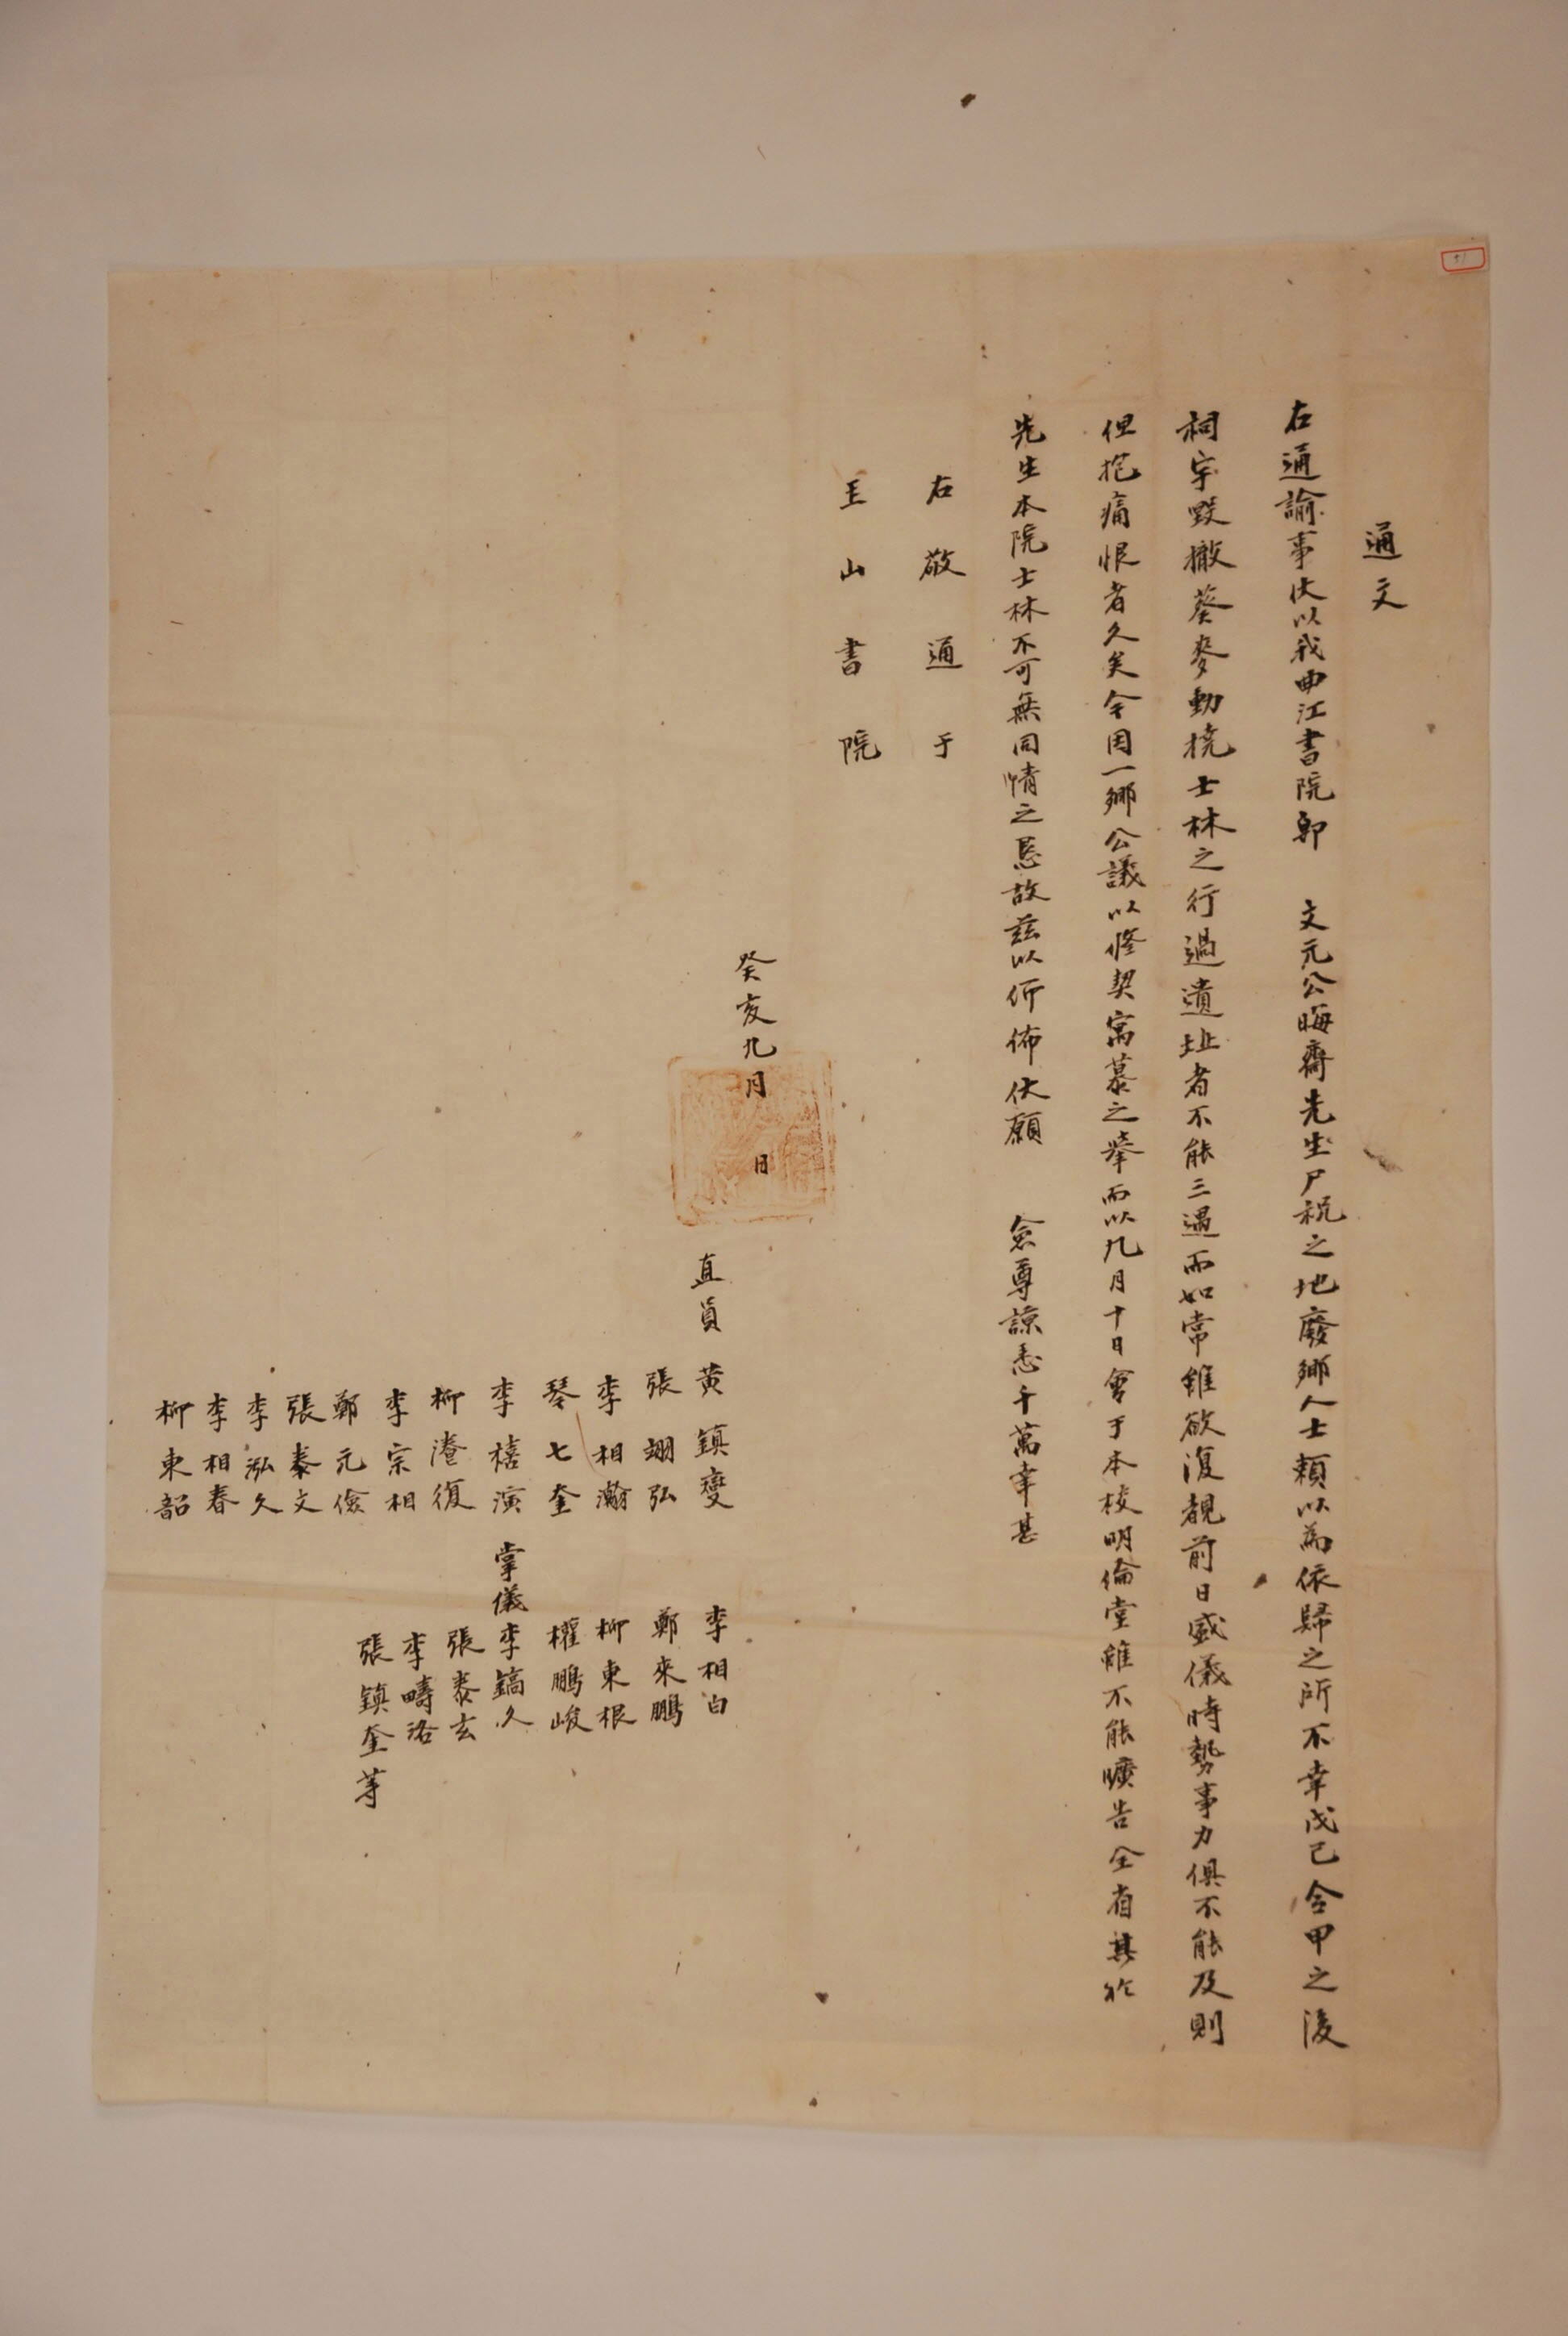 通文
右通諭事伏以我曲江書院卽 文元公晦齋先生尸祝之地廢鄉人士賴以為依歸之所不幸戊己令甲之後
祠宇毀撤葵麥動搖士林之行過遺址者不能三過而如常雖欲復覩前日盛儀時勢事力俱不能及則
但抱痛恨者久矣今因一鄉公議以修契寓慕之擧而以九月十日會于本校明倫堂雖不能曠告全省其於
先生本院士林不可無同情之懇故玆以仰佈伏願 僉尊諒悉千萬幸甚
右敬通于
玉山書院
癸亥九月 日
直員 黄鎮燮 李相白
張翊弘 鄭來鵬
李相瀚 柳東根
琴七奎 權鵬峻
李禧演 掌儀李鎬久
柳澄復 張泰玄
李宗相 李疇洛
鄭元儉 張鎮奎等
張泰文
李泓久
李相春
柳東韶